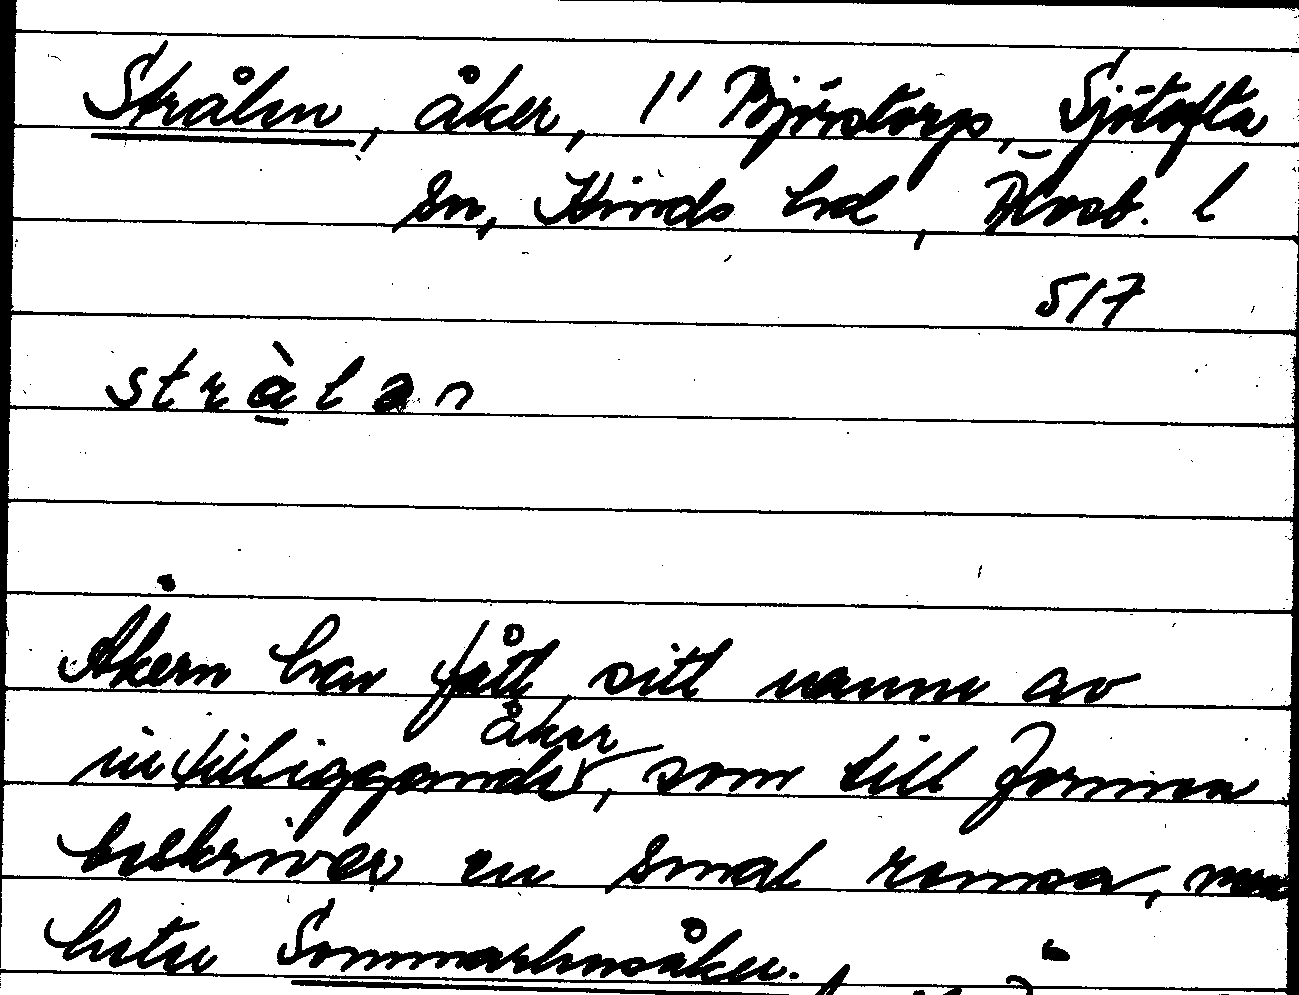 Strålen, åker, 1" Björstorp, Sjötofta
sn, Kinds hd, Älvsb. l
517
stràlan
Åkern har fått sitt namn av
intilliggande åker, som till formen
beskriver en smal remsa, men
heter Sommarhusåker.